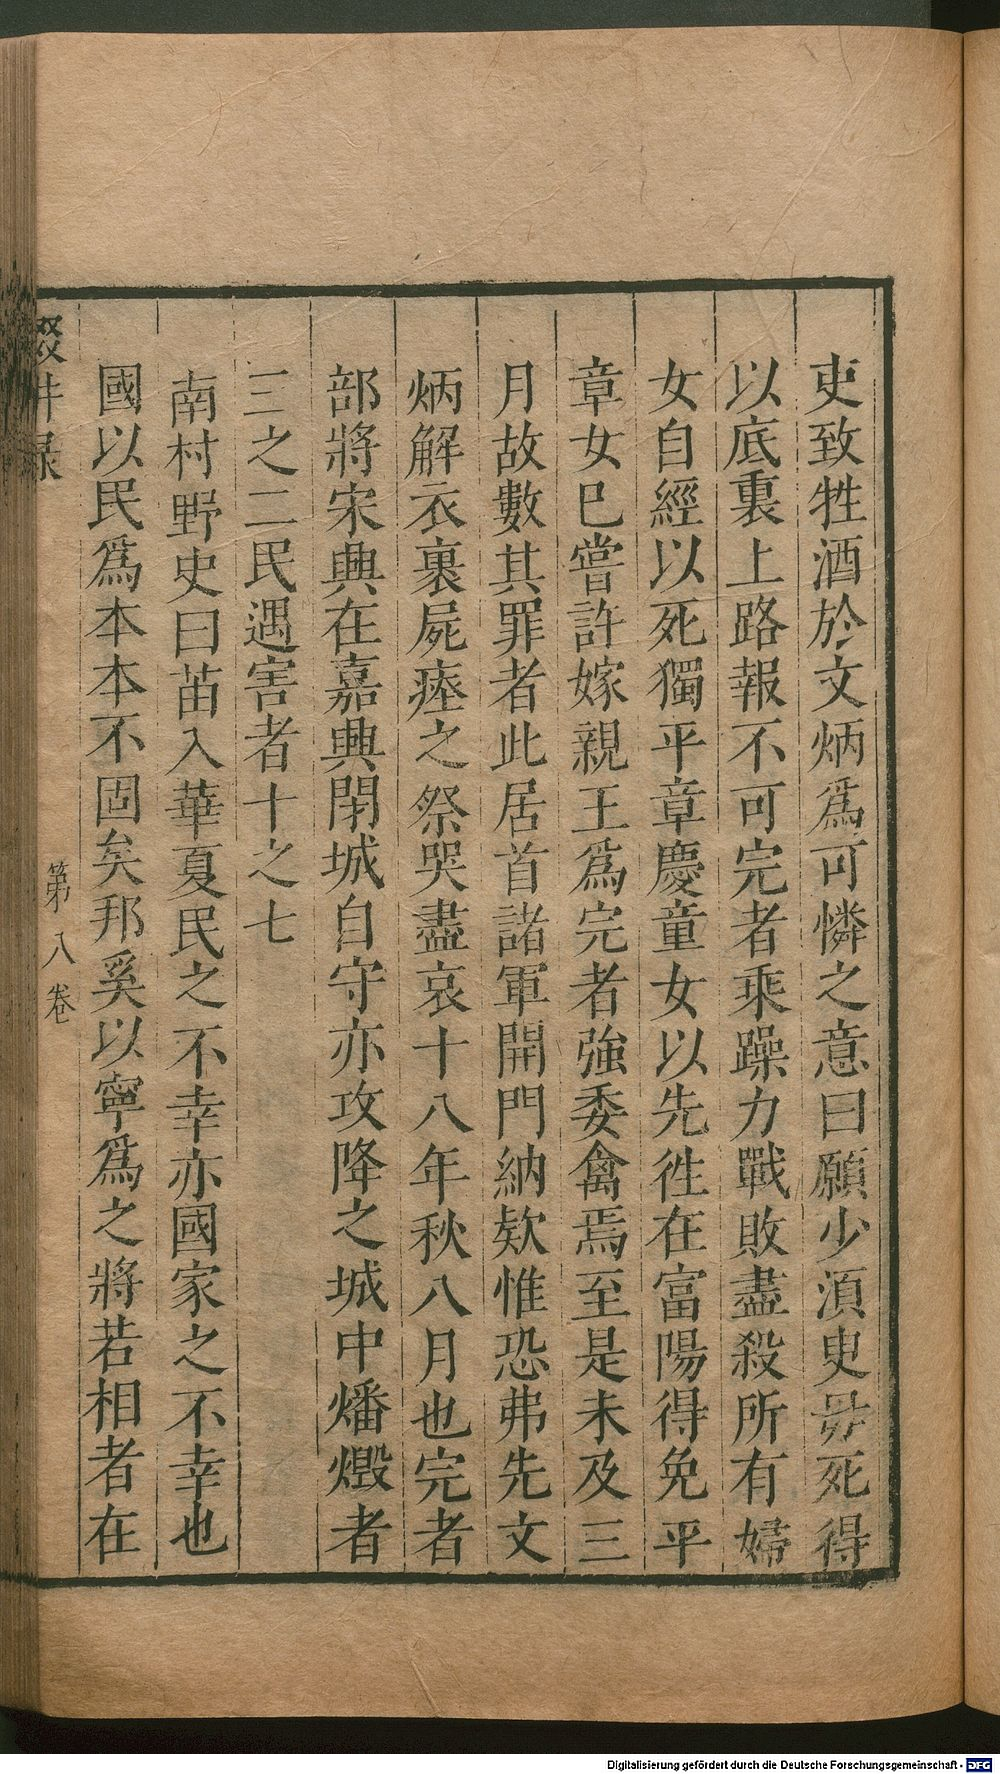 吏致牲酒於文炳爲可憐之意曰願少湏臾毋死得
以底裏上路報不可完者乘躁力戰敗盡殺所有婦
女自經以死獨平章慶童女以先徃在富陽得免平
章女巳嘗許嫁親王爲完者強委禽焉至是未及三
月故數其罪者此居首諸軍開門納欵惟恐弗先文
炳解衣裹屍瘞之祭哭盡哀十八年秋八月也完者
部將宋興在嘉興閉城自守亦攻降之城中燔燬者
三之二民遇害者十之七
南村野史曰苗入華夏民之不幸亦國家之不幸也
國以民爲本本不固矣邦奚以寧爲之將若相者在
輟畊录
第八卷
Digitalisierung gefördert durch die Deutsche Forschungsgemeinschaft - DFG